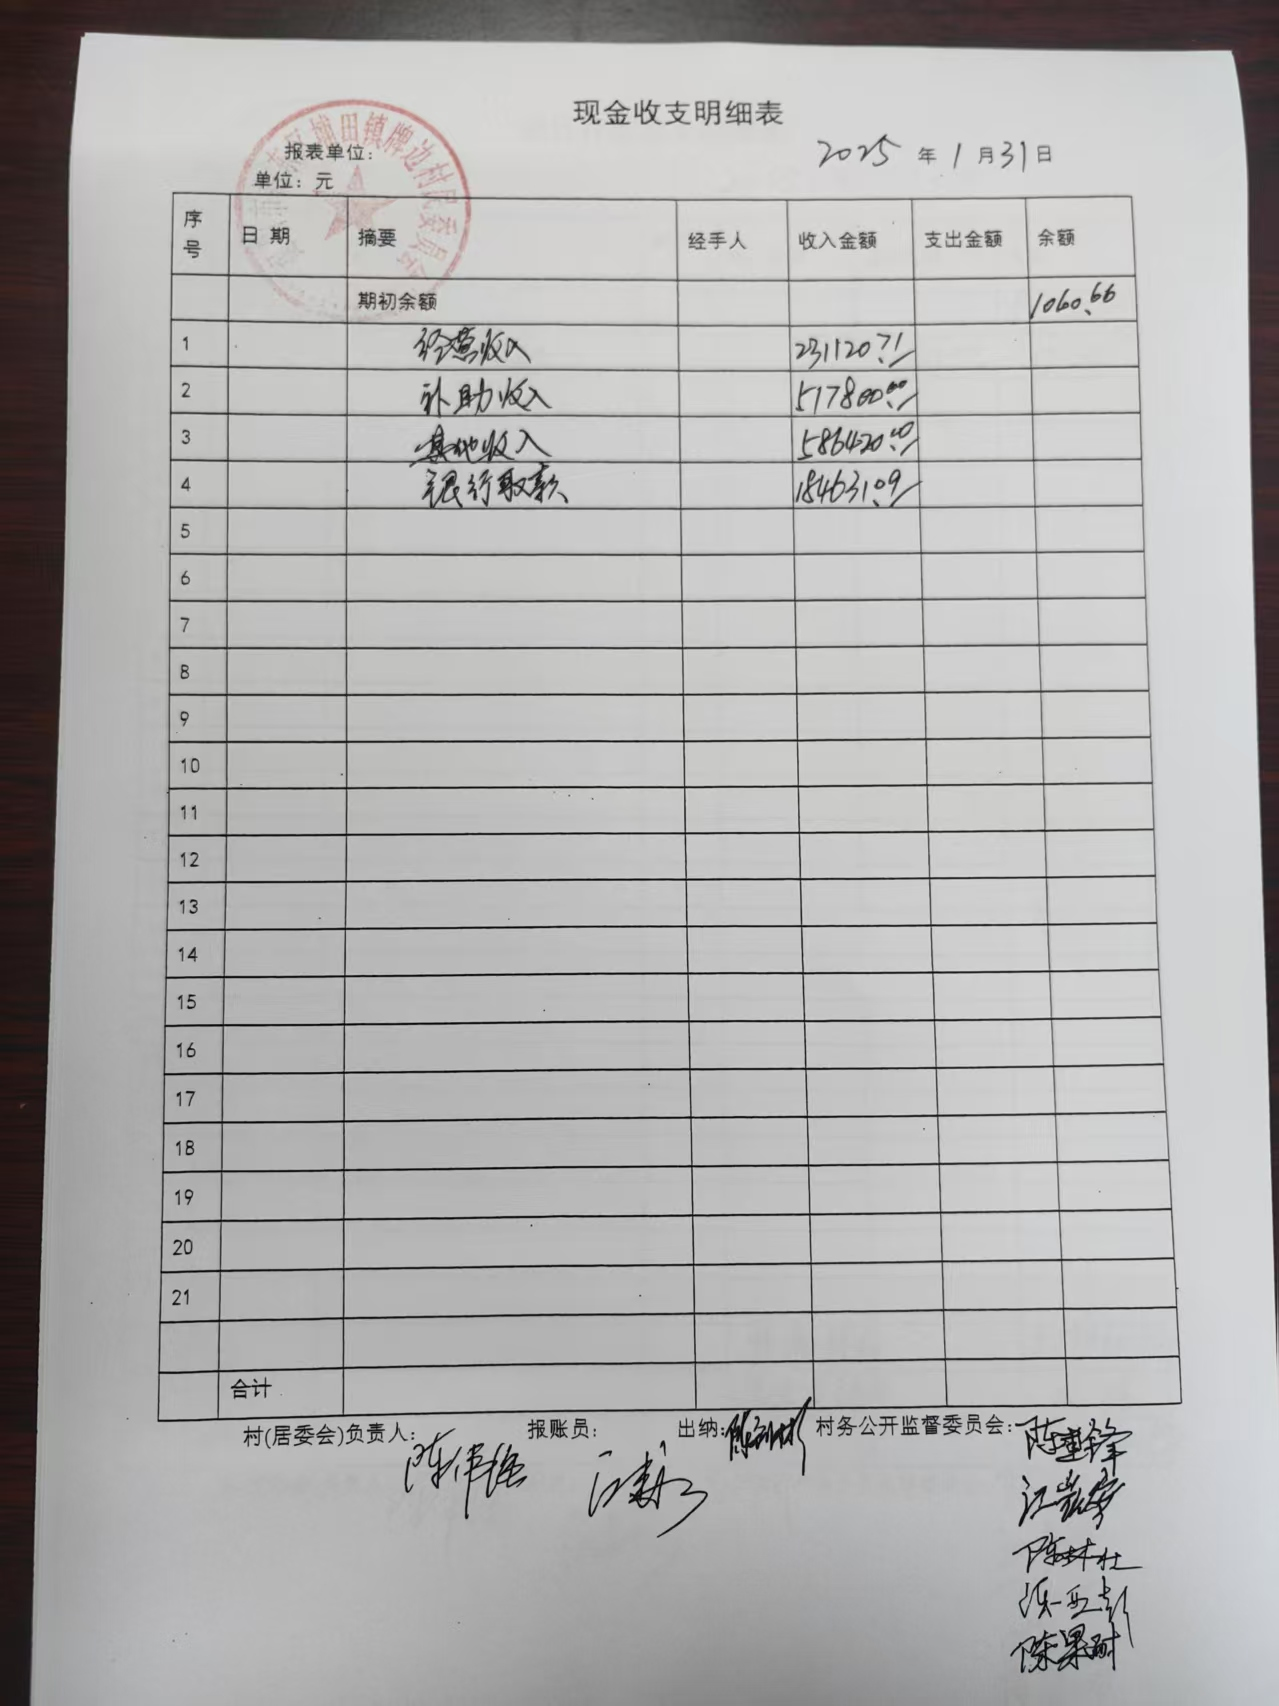 现金收支明细表
报表单位：
2025 年 1 月 31 日
单位：元
埔田镇牌边村民委员会
序号 日期 摘要 经手人 收入金额 支出金额 余额
期初余额 1060.66
1 经营收入 231120.71
2 补助收入 517800.00
3 其他收入 586420.00
4 银行取款 184631.09
5
6
7
8
9
10
11
12
13
14
15
16
17
18
19
20
21
合计
村(居委会)负责人： 陈伟强 报账员： 出纳： 村务公开监督委员会：